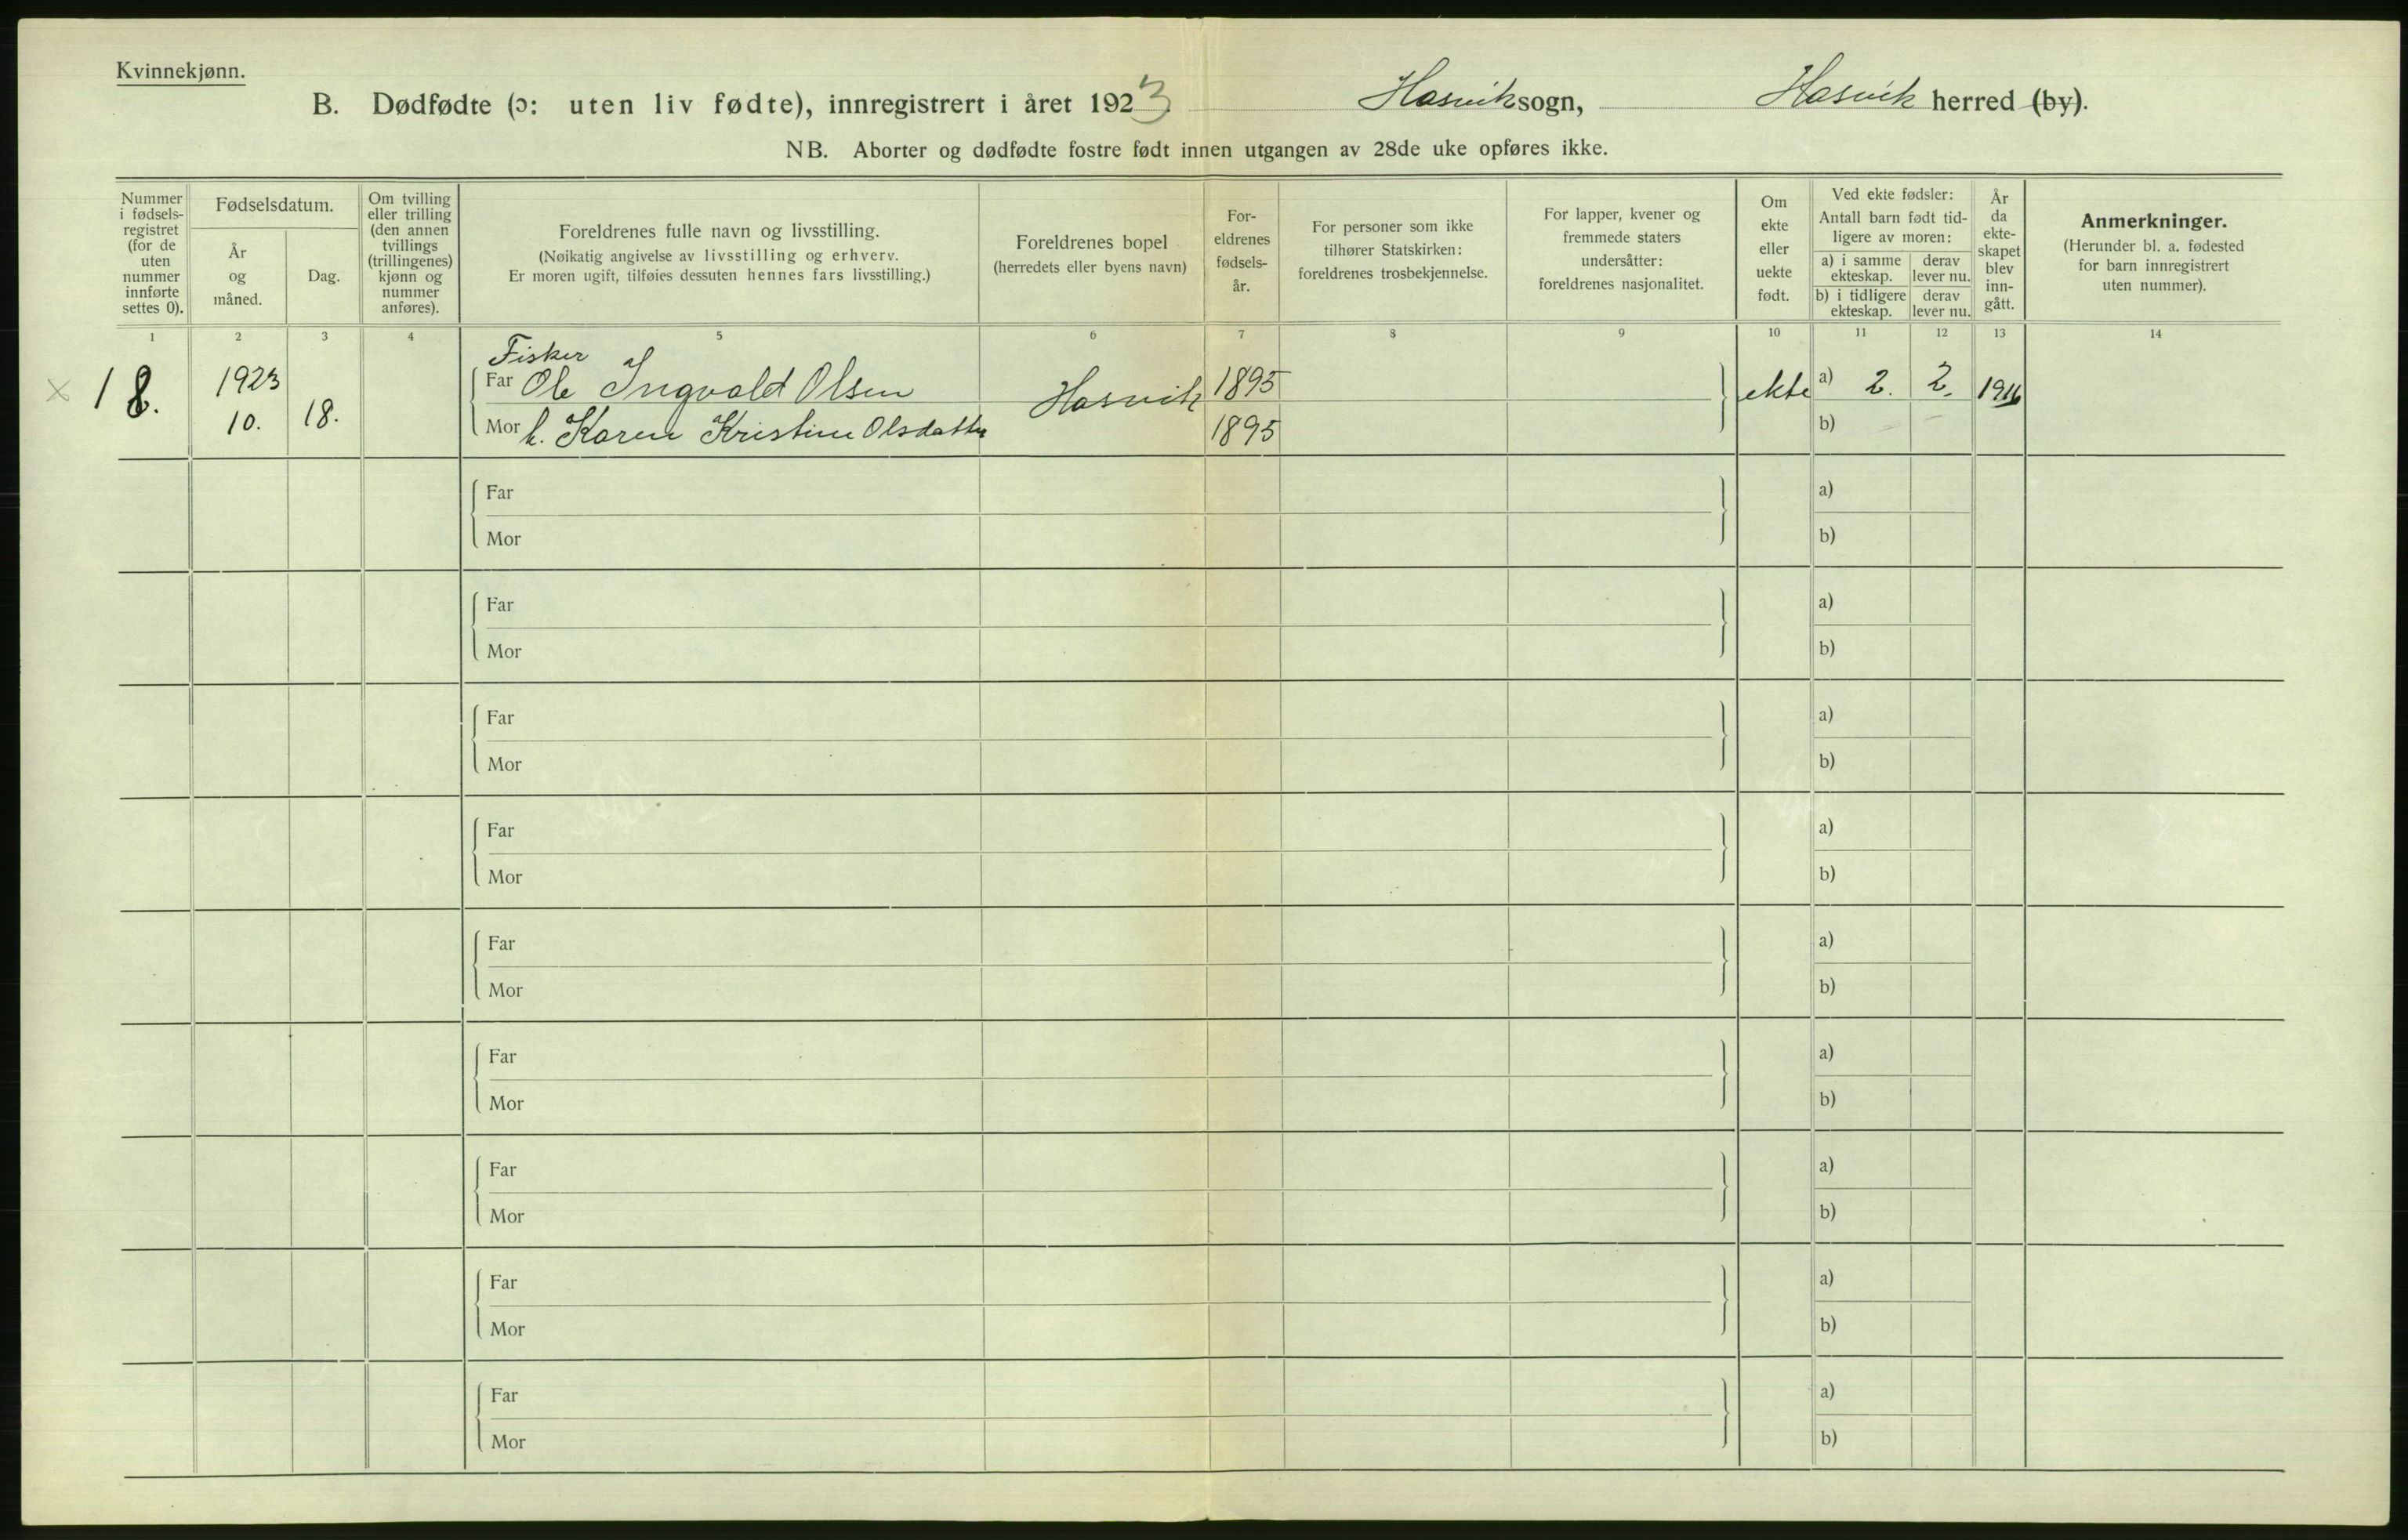 Kvinnekjønn.
B. Dødfødte (ɔ: uten liv fødte), innregistrert i året 1923 Hasvik sogn, Hasvik herred (by).
NB. Aborter og dødfødte fostre født innen utgangen av 28de uke opføres ikke.
Nummer
i fødsels-
registret
(for de
uten
nummer
innførte
settes 0).
Fødselsdatum.
År
og
måned.
Dag.
Om tvilling
eller trilling
(den annen
tvillings
(trillingenes)
kjønn og
nummer
anføres).
Foreldrenes fulle navn og livsstilling.
(Nøikatig angivelse av livsstilling og erhverv.
Er moren ugift, tilføies dessuten hennes fars livsstilling.)
Foreldrenes bopel
(herredets eller byens navn)
For-
eldrenes
fødsels-
år.
For personer som ikke
tilhører Statskirken:
foreldrenes trosbekjennelse.
For lapper, kvener og
fremmede staters
undersåtter:
foreldrenes nasjonalitet.
Om
ekte
eller
uekte
født.
Ved ekte fødsler:
Antall barn født tid-
ligere av moren:
a) i samme
ekteskap.
derav
lever nu.
b) i tidligere
ekteskap.
derav
lever nu.
År
da
ekte-
skapet
blev
inn-
gått.
Anmerkninger.
(Herunder bl. a. fødested
for barn innregistrert
uten nummer).
1 2 3 4 5 6 7 8 9 10 11 12 13 14
Fisker
× 18. 1923 Far Ole Ingvald Olsen Hasvik 1895 ekte a) 2. 2. 1916
10. 18. Mor h. Karen Kristine Olsdatter 1895 b)
Far a)
Mor b)
Far a)
Mor b)
Far a)
Mor b)
Far a)
Mor b)
Far a)
Mor b)
Far a)
Mor b)
Far a)
Mor b)
Far a)
Mor b)
Far a)
Mor b)